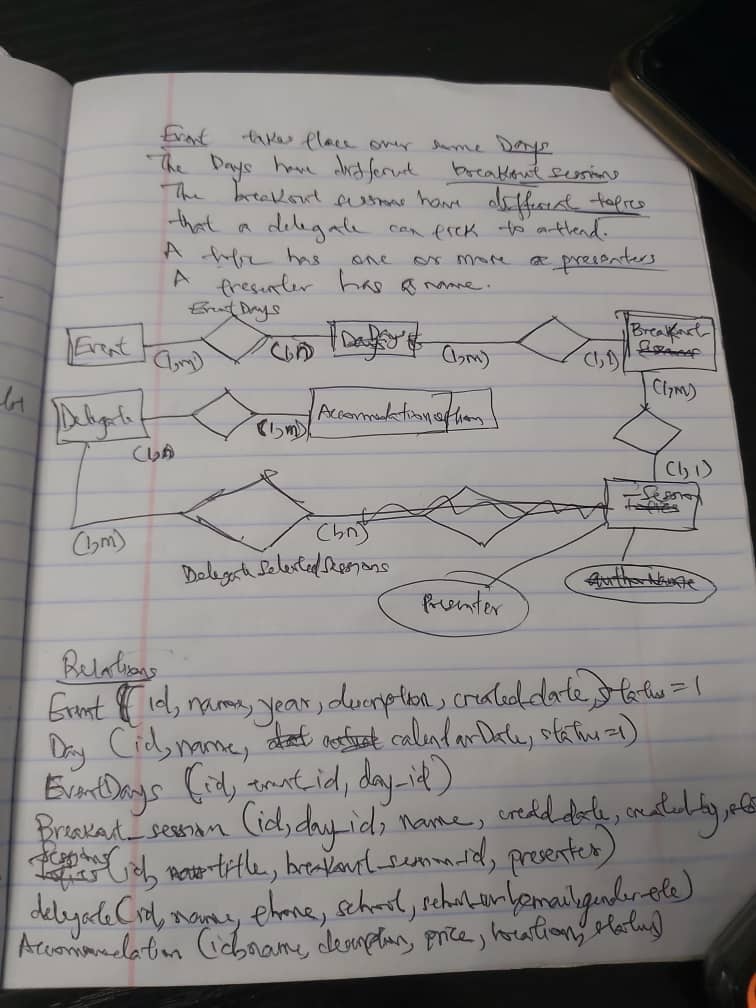 Event takes place over some Days
The Days have different breakout sessions
The breakout sessions have different topics
that a delegate can pick to attend.
A topic has one or more presenters
A presenter has a name.
Event Days
Event
(1,m)
(1,n)
Days
(1,m)
(1,1)
Breakout
(1,m)
Delegate
(1,m)
Accommodation option
(1,1)
Session
(1,m)
(1,n)
Delegate Selected Sessions
Presenter
Author Name
Relations
Event (id, name, year, description, created_date, status=1
Day (id, name, calendarDate, status=1)
EventDays (id, event_id, day_id)
Breakout_session (id, day_id, name, created_date, created_by,
(id, title, breakout_session_id, presenter)
delegate (id, name, phone, school, email, gender
Accommodation (id, name, description, price, location, status)